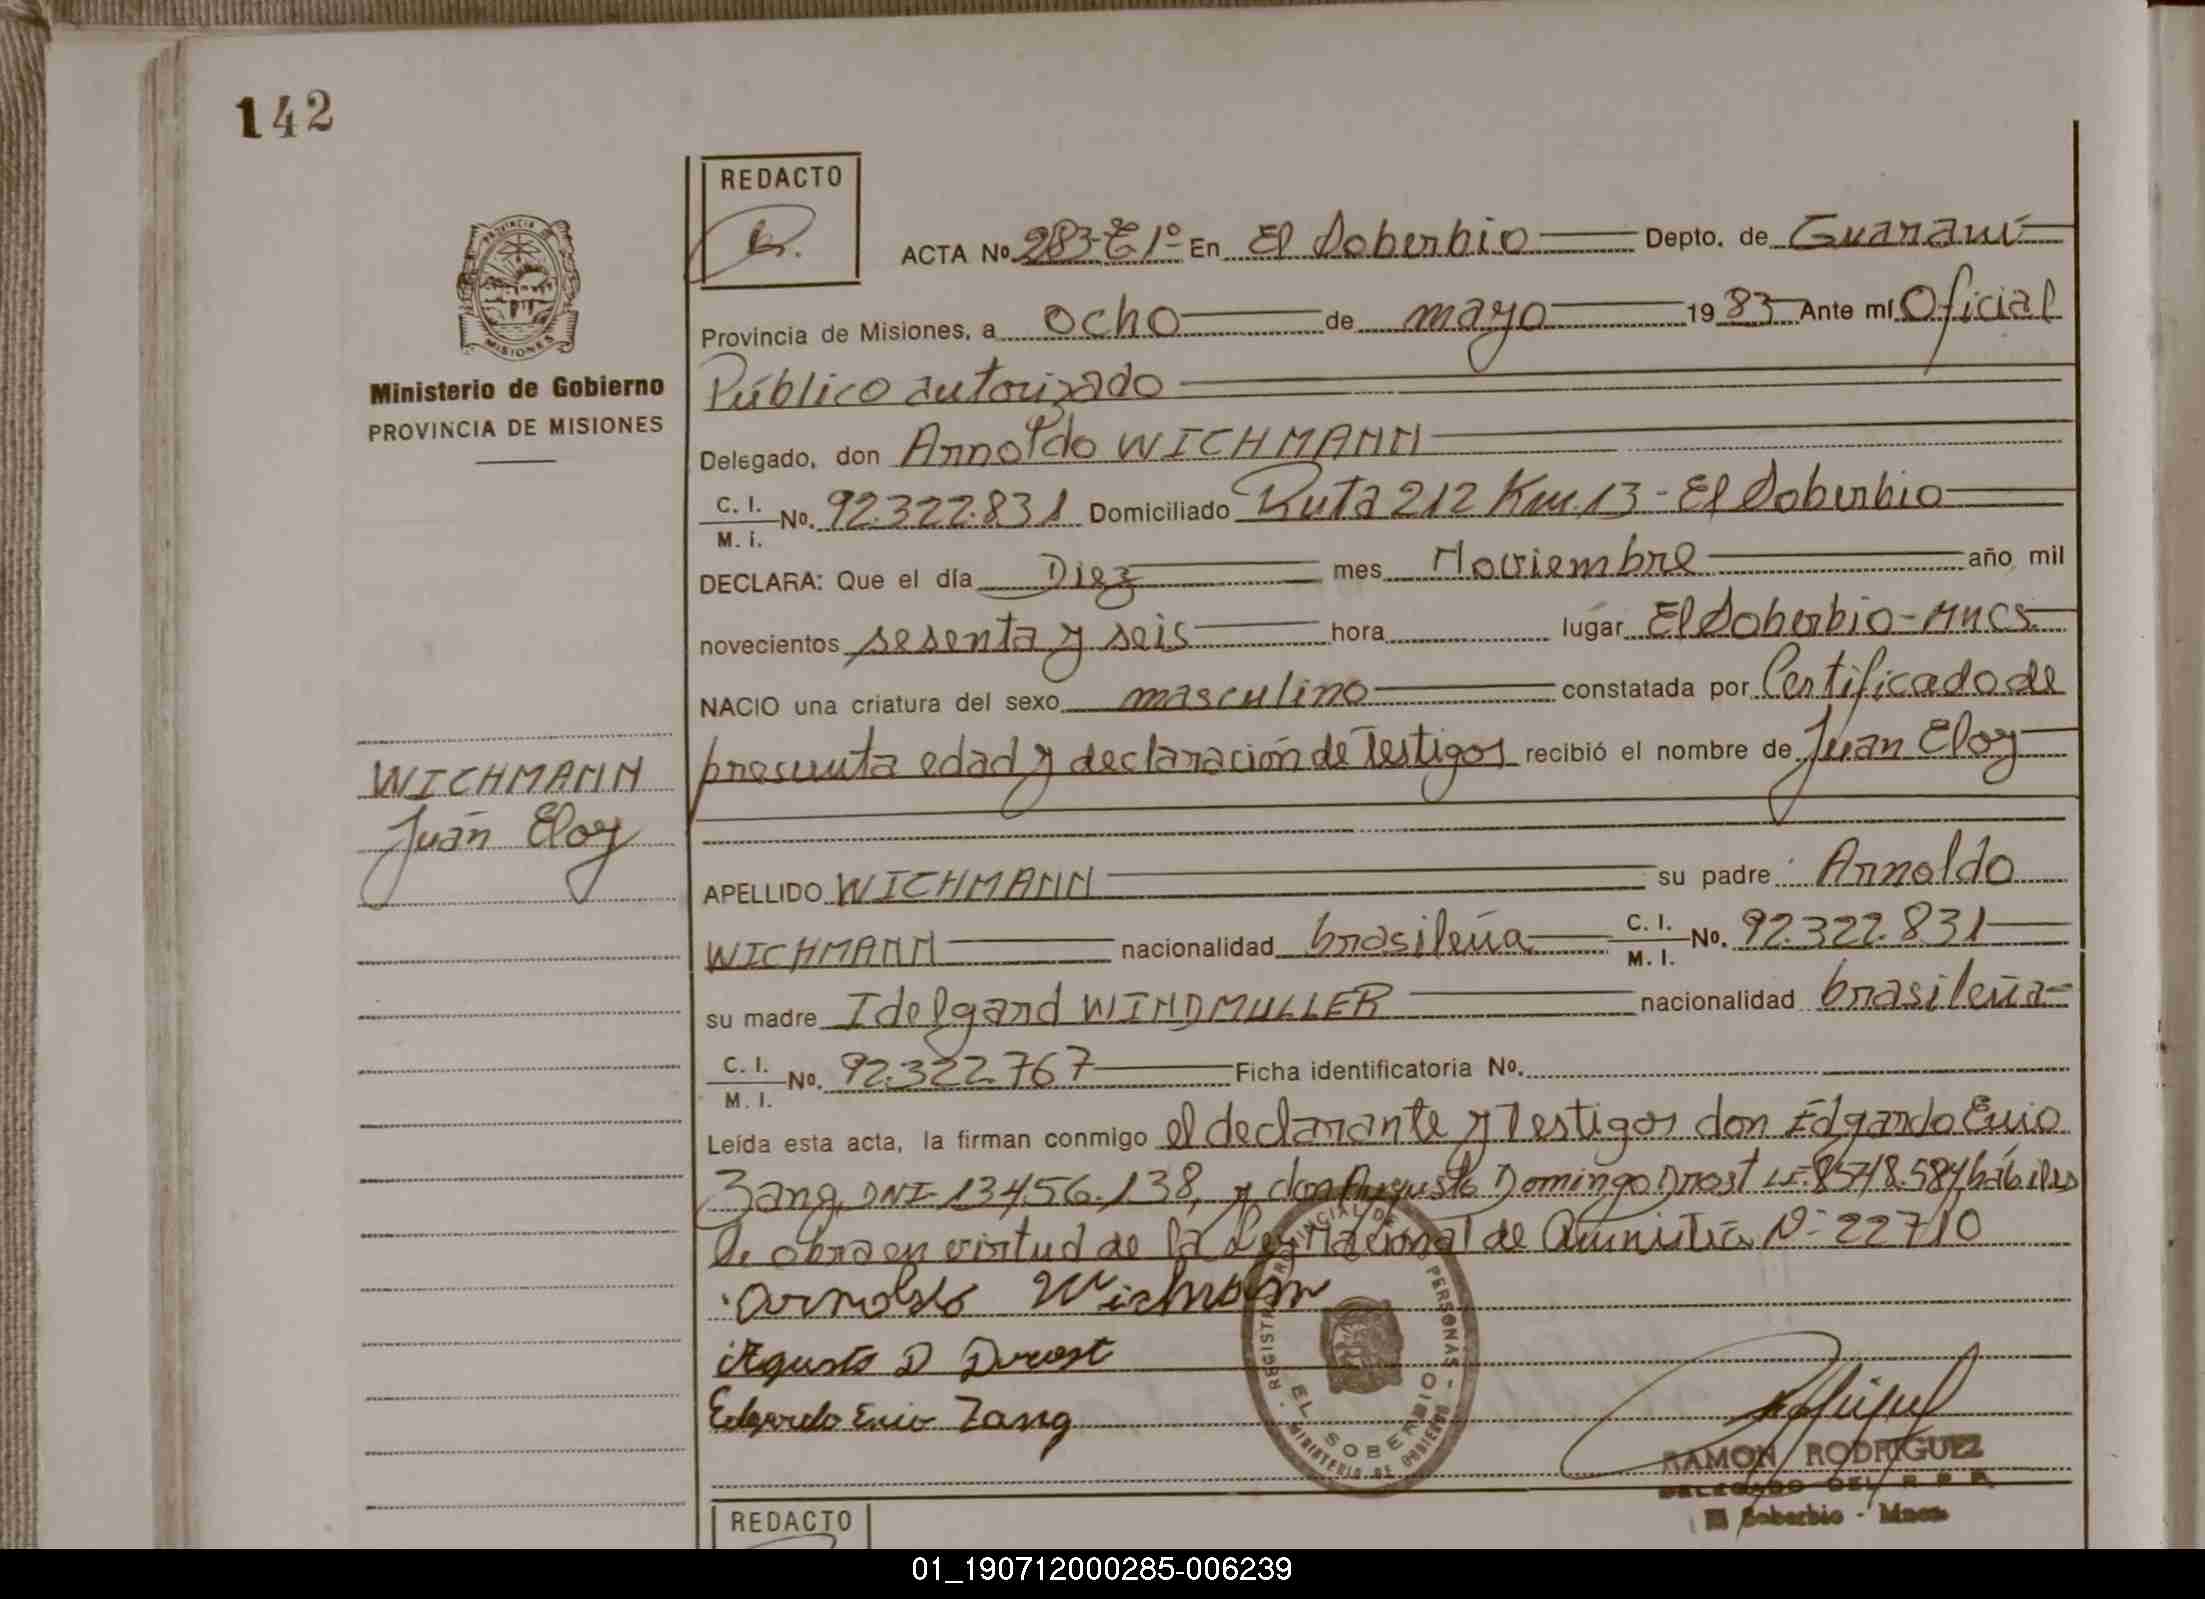 142
PROVINCIA DE
MISIONES
Ministerio de Gobierno
PROVINCIA DE MISIONES
WICHMANN
Juan Eloy
REDACTO
ACTA Nº 283-T 1º En El Soberbio Depto. de Guaraní
Provincia de Misiones, a ocho de mayo 1983 Ante mí Oficial
Público autorizado
Delegado, don Arnoldo WICHMANN
C. I. M. I. Nº. 92.322.831 Domiciliado Ruta 212 Km. 13 - El Soberbio
DECLARA: Que el día Diez mes Noviembre año mil
novecientos sesenta y seis hora lugar El Soberbio - Mnes.
NACIO una criatura del sexo masculino constatada por Certificado de
presunta edad y declaración de Testigos recibió el nombre de Juan Eloy
APELLIDO WICHMANN su padre: Arnoldo
WICHMANN nacionalidad brasileña C. I. M. I. Nº. 92.322.831
su madre Idelgard WINDMULLER nacionalidad brasileña
C. I. M. I. Nº. 92.322.767 Ficha identificatoria Nº.
Leída esta acta, la firman conmigo el declarante y Testigos don Edgardo Enio
Zang, DNI-13.456.138, y don Augusto Domingo Drost LE. 8.548.584, hábiles
Se obra en virtud de la Ley Nacional de Amnistía Nº 22710
Arnoldo Wichmann
Agusto D Drost
Edgardo Enio Zang
REGISTRO PROVINCIAL DE LAS PERSONAS
EL SOBERBIO
MINISTERIO DE GOBIERNO
RAMON RODRIGUEZ
DELEGADO DEL R P P
El Soberbio - Mnes
REDACTO
01_190712000285-006239